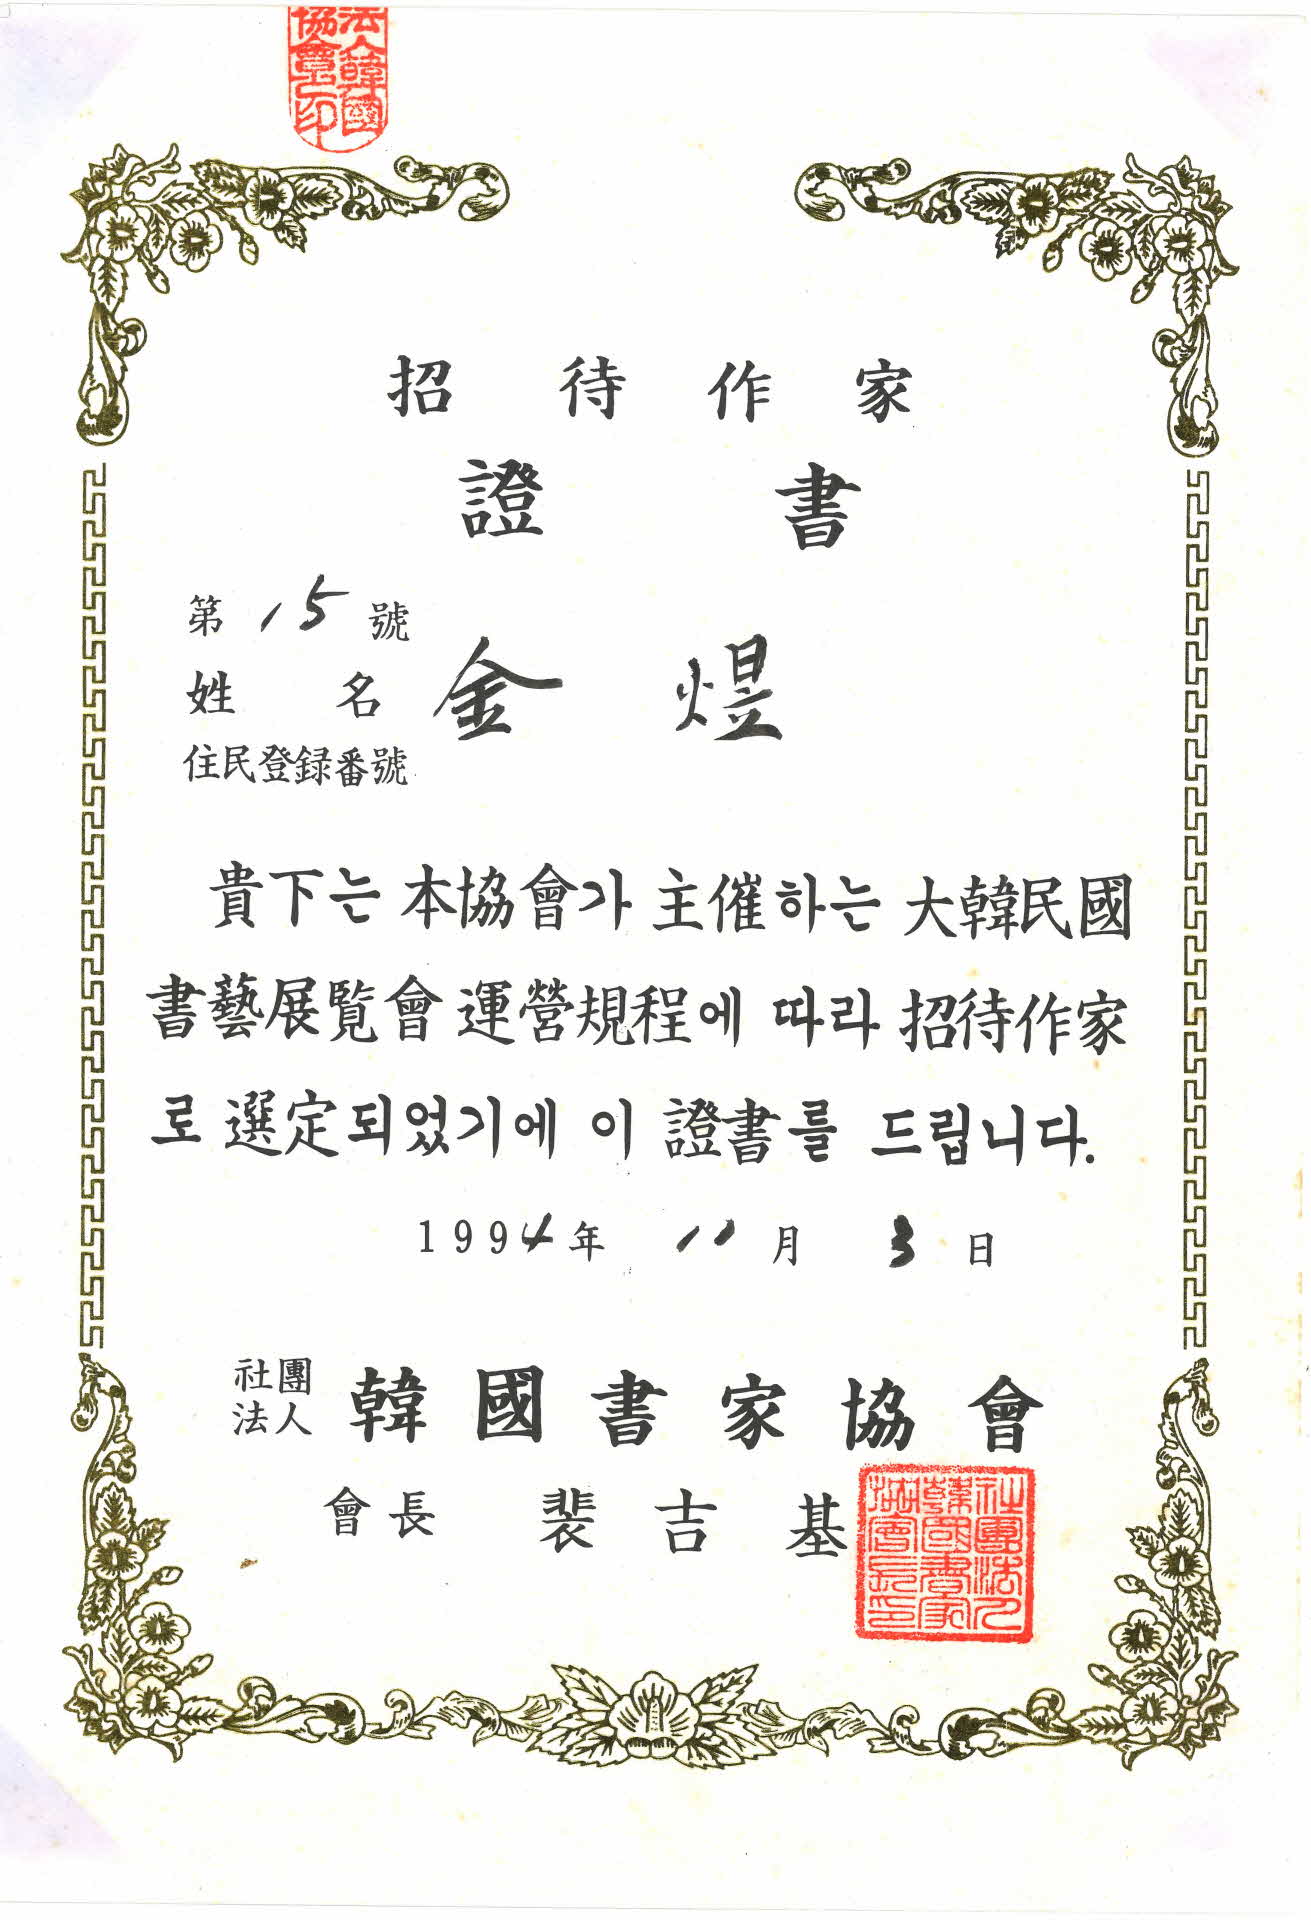 招待作家
證書
第 15 號
姓名 金煜
住民登録番號
貴下는 本協會가 主催하는 大韓民國
書藝展覧會 運營規程에 따라 招待作家
로 選定되었기에 이 證書를 드립니다.
1994年 11月 3日
社團法人 韓國書家協會
會長 裴吉基
社團法人
韓國書家
協會長印